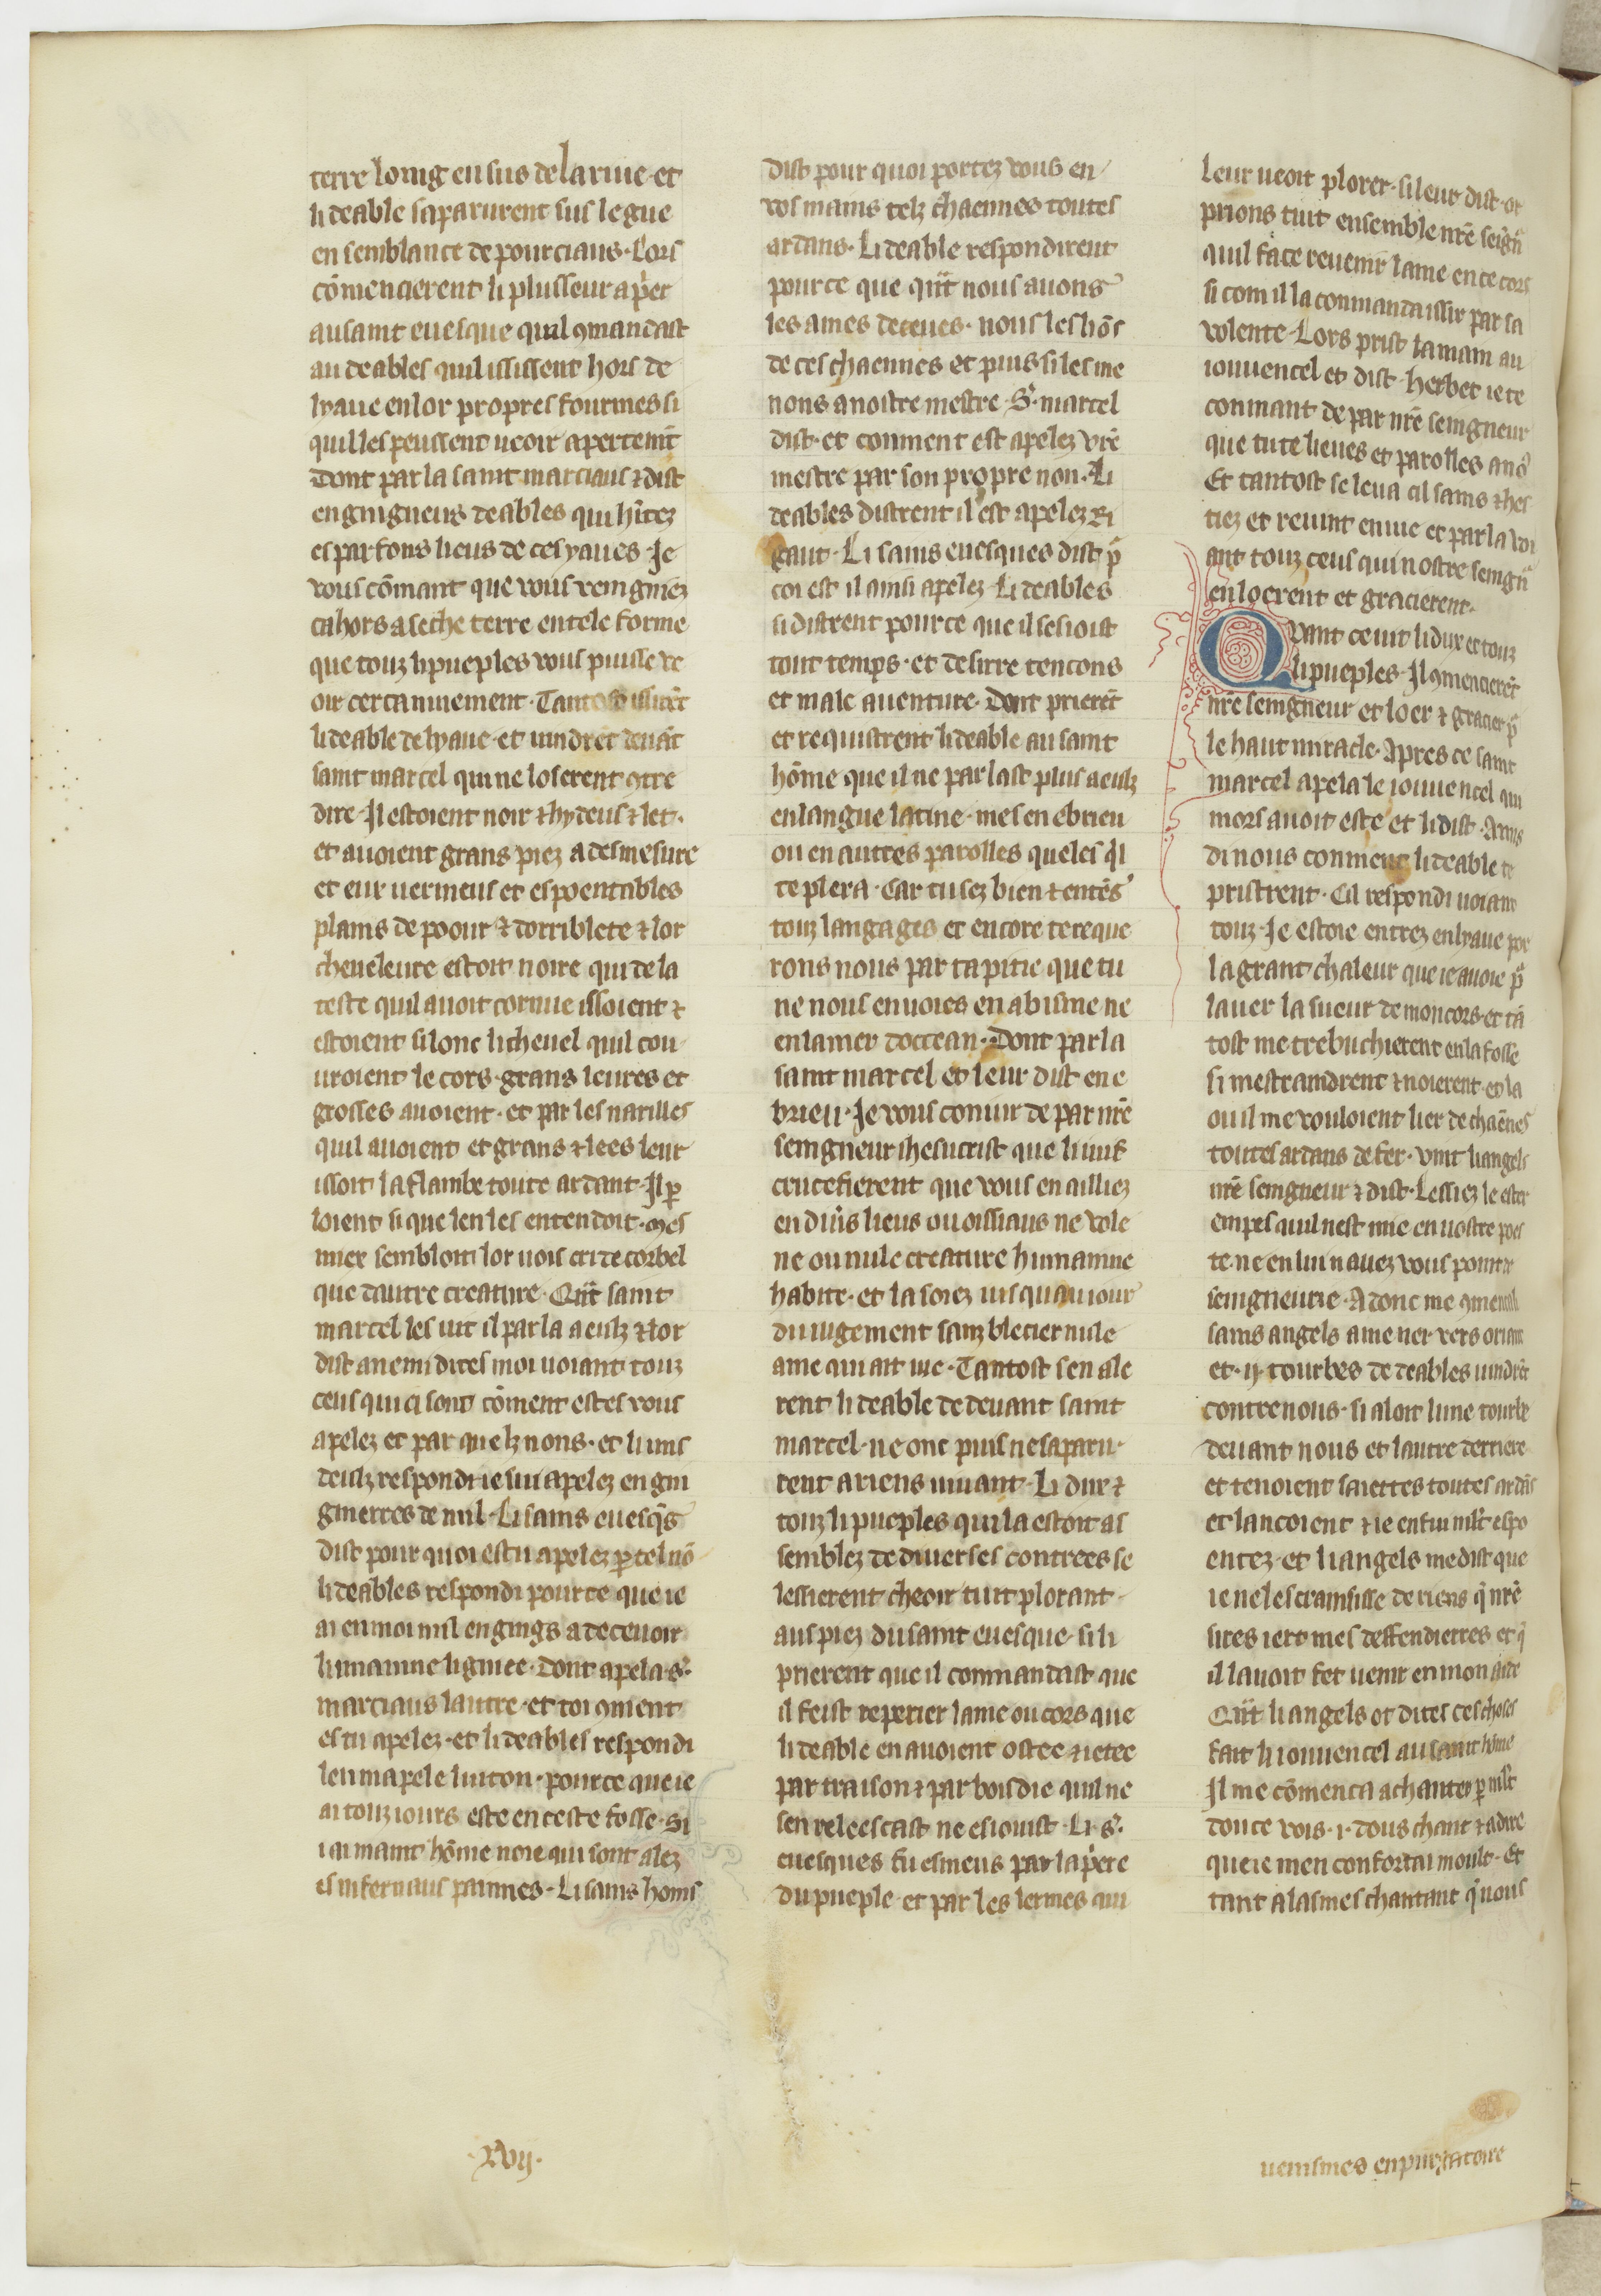 terre loing en sus de la riue et
li deable saparurent sus le gue
en semblance de pourciaus. Lors
cōmencierent li plusseur a p̄er
au saint euesque quil ꝯmandast
au deables quil ississent hors de
lyaue en lor propres fourmes si
quil les peussent ueoir apertemēt
Dont parla saint marciaus ⁊ dist
engingneurs deables qui hītez
es parfons lieus de ces yaues. Je
vous cōmant que vous veingniez
ca hors a seche terre en tele forme
que touz li pueples vous puisse ve
oir certainnement. Tantost issirēt
li deable de lyaue. et uindrēt deuāt
saint marcel qui ne loserent ꝯtre
dire. Il estoient noir ⁊ hydeus ⁊ let.
et auoient grans piez a desmesure
et eur uermeus et espoentables
plains de poour ⁊ dorriblete ⁊ lor
cheueleure estoit noire qui de la
teste quil auoit cornue issoient ⁊
estoient si lonc li cheuel quil cou
uroient le cors. grans leures et
grosses auoient. et par les narilles
quil auoient et grans ⁊ lees leur
issoit la flambe toute ardant. Il ꝑ
loient si que len les entendoit. mes
miex sembloit lor uois cri de corbel
que dautre creature. Quāt saint
marcel les uit il parla a eulz ⁊ lor
dist anemi dites moi uoiant touz
ceus qui ci sont cōment estes vous
apelez et par quelz nons. et li uns
deulz respondi ie sui apelez engin
gnierres de mil. Li sains euesq̄s
dist pour quoi es tu apelez ꝑ tel nō
li deables respondi pour ce que ie
ai en moi mil engings a deceuoir
lumainne ligniee. Dont apela .s.
marciaus lautre. et toi ꝯment
es tu apelez. et li deables respondi
len mapele luiton. pour ce que ie
ai touz iours este en ceste fosse. Si
i ai maint hōme noie qui sont alez
es infernaus painnes. Li sains homs
dist pour quoi portez vous en
vos mains telz chaennes toutes
ardans. Li deable respondirent
pour ce que quāt nous auons
les ames deceues. nous les liōs
de ces chaennes et puis si les me
nons a nostre mestre. S. marcel
dist. et conment est apelez vr̄e
mestre par son propre non. Li
deables distrent il est apelez Ri
gaut. Li sains euesques dist p̄
coi est il ainsi apelez. Li deables
si distrent pour ce que il sesioist
tout temps. et desirre tencons
et male auenture. Dont prierēt
et requistrent li deable au saint
hōme que il ne parlast plus a eulz
en langue latine. mes en ebrieu
ou en autres parolles queles q̄l
te plera. Car tu sez bien ⁊ entēs
touz langages et encore te reque
rons nous par ta pitie que tu
ne nous enuoies en abisme ne
en la mer doccean. Dont parla
saint marcel et leur dist en e
brieu. Je vous coniur de par nr̄e
seingneur ihesucrist que li iuif
crucefierent que vous en ailliez
en diuūs lieus ou oissiaus ne vole
ne ou nule creature humainne
habite. et la soiez iusquau iour
du iugement sanz blecier nule
ame qui ait uie. Tantost sen ale
rent li deable de deuant saint
marcel. ne onc puis ne saparu
rent a riens uiuant. Li dux ⁊
touz li pueples qui la estoit as
semblez de diuerses contrees se
lessierent cheoir tuit plorant
aus piez du saint euesque. si li
prierent que il commandast que
il feist reperier lame ou cors que
li deable en auoient ostee ⁊ ietee
par traison ⁊ par boisdie quil ne
sen releescast ne esiouist. Li .s.
euesques fu esmeus par la p̄ere
du pueple. et par les lermes qui
leur ueoit plorer. si leur dist. or
prions tuit ensemble nr̄e seign̄
quil face reuenir lame en ce cors
si com il la conmanda issir par sa
volente. Lors prist la main au
iouuencel et dist. herbert ie te
conmant de par nr̄e seingneur
que tu te lieues et parolles a nō
Et tantost se leua cil sains ⁊ hes
tiez et reuint en uie et parla voi
ant touz ceus qui nostre seingn̄
en loerent et gracierent.
Quant ce uit li dux et touz
li pueples. Il ꝯmencierēt
nr̄e seingneur et loer ⁊ gracier p̄
le haut miracle. Apres ce saint
marcel apela le iouuencel qui
mors auoit este et li dist. Amis
di nous conment li deable te
pristrent. Cil respondi uoiant
touz. Je estoie entrez en lyaue por
la grant chaleur que ie auoie p̄
lauer la sueur de mon cors. et tā
tost me trebuchierent en la fosse
si mestraindrent ⁊ noierent. et la
ou il me vouloient lier de chaēnes
toutes ardans de fer. vint li angels
nr̄e seingneur ⁊ dist. Lessiez le ester
em pes quil nest mie en uostre poes
te. ne en lui nauez vous point de
seingneurie. Adonc me ꝯmenca li
sains angels a mener vers oriant
et .ij. tourbes de deables uindrēt
contre nous. si aloit lune tourbe
deuant nous et lautre derriere
et tenoient saiettes toutes ardās
et lancoient ⁊ ie en fui mlt̄ espo
entez. et li angels me dist que
ie ne les crainsisse de riens q̄ nr̄e
sires iert mes deffendierres et q̄
il lauoit fet uenir en mon aide
Quāt li angels ot dites ces choses
fait li iouuencel au saint hōme
Il me cōmenca a chanter ꝑ mlt̄
douce vois .i. dous chant ⁊ a dire
que ie men confortai moult. Et
tant alasmes chantant q̄ nous
.xvij.
uenismes en purgatoire